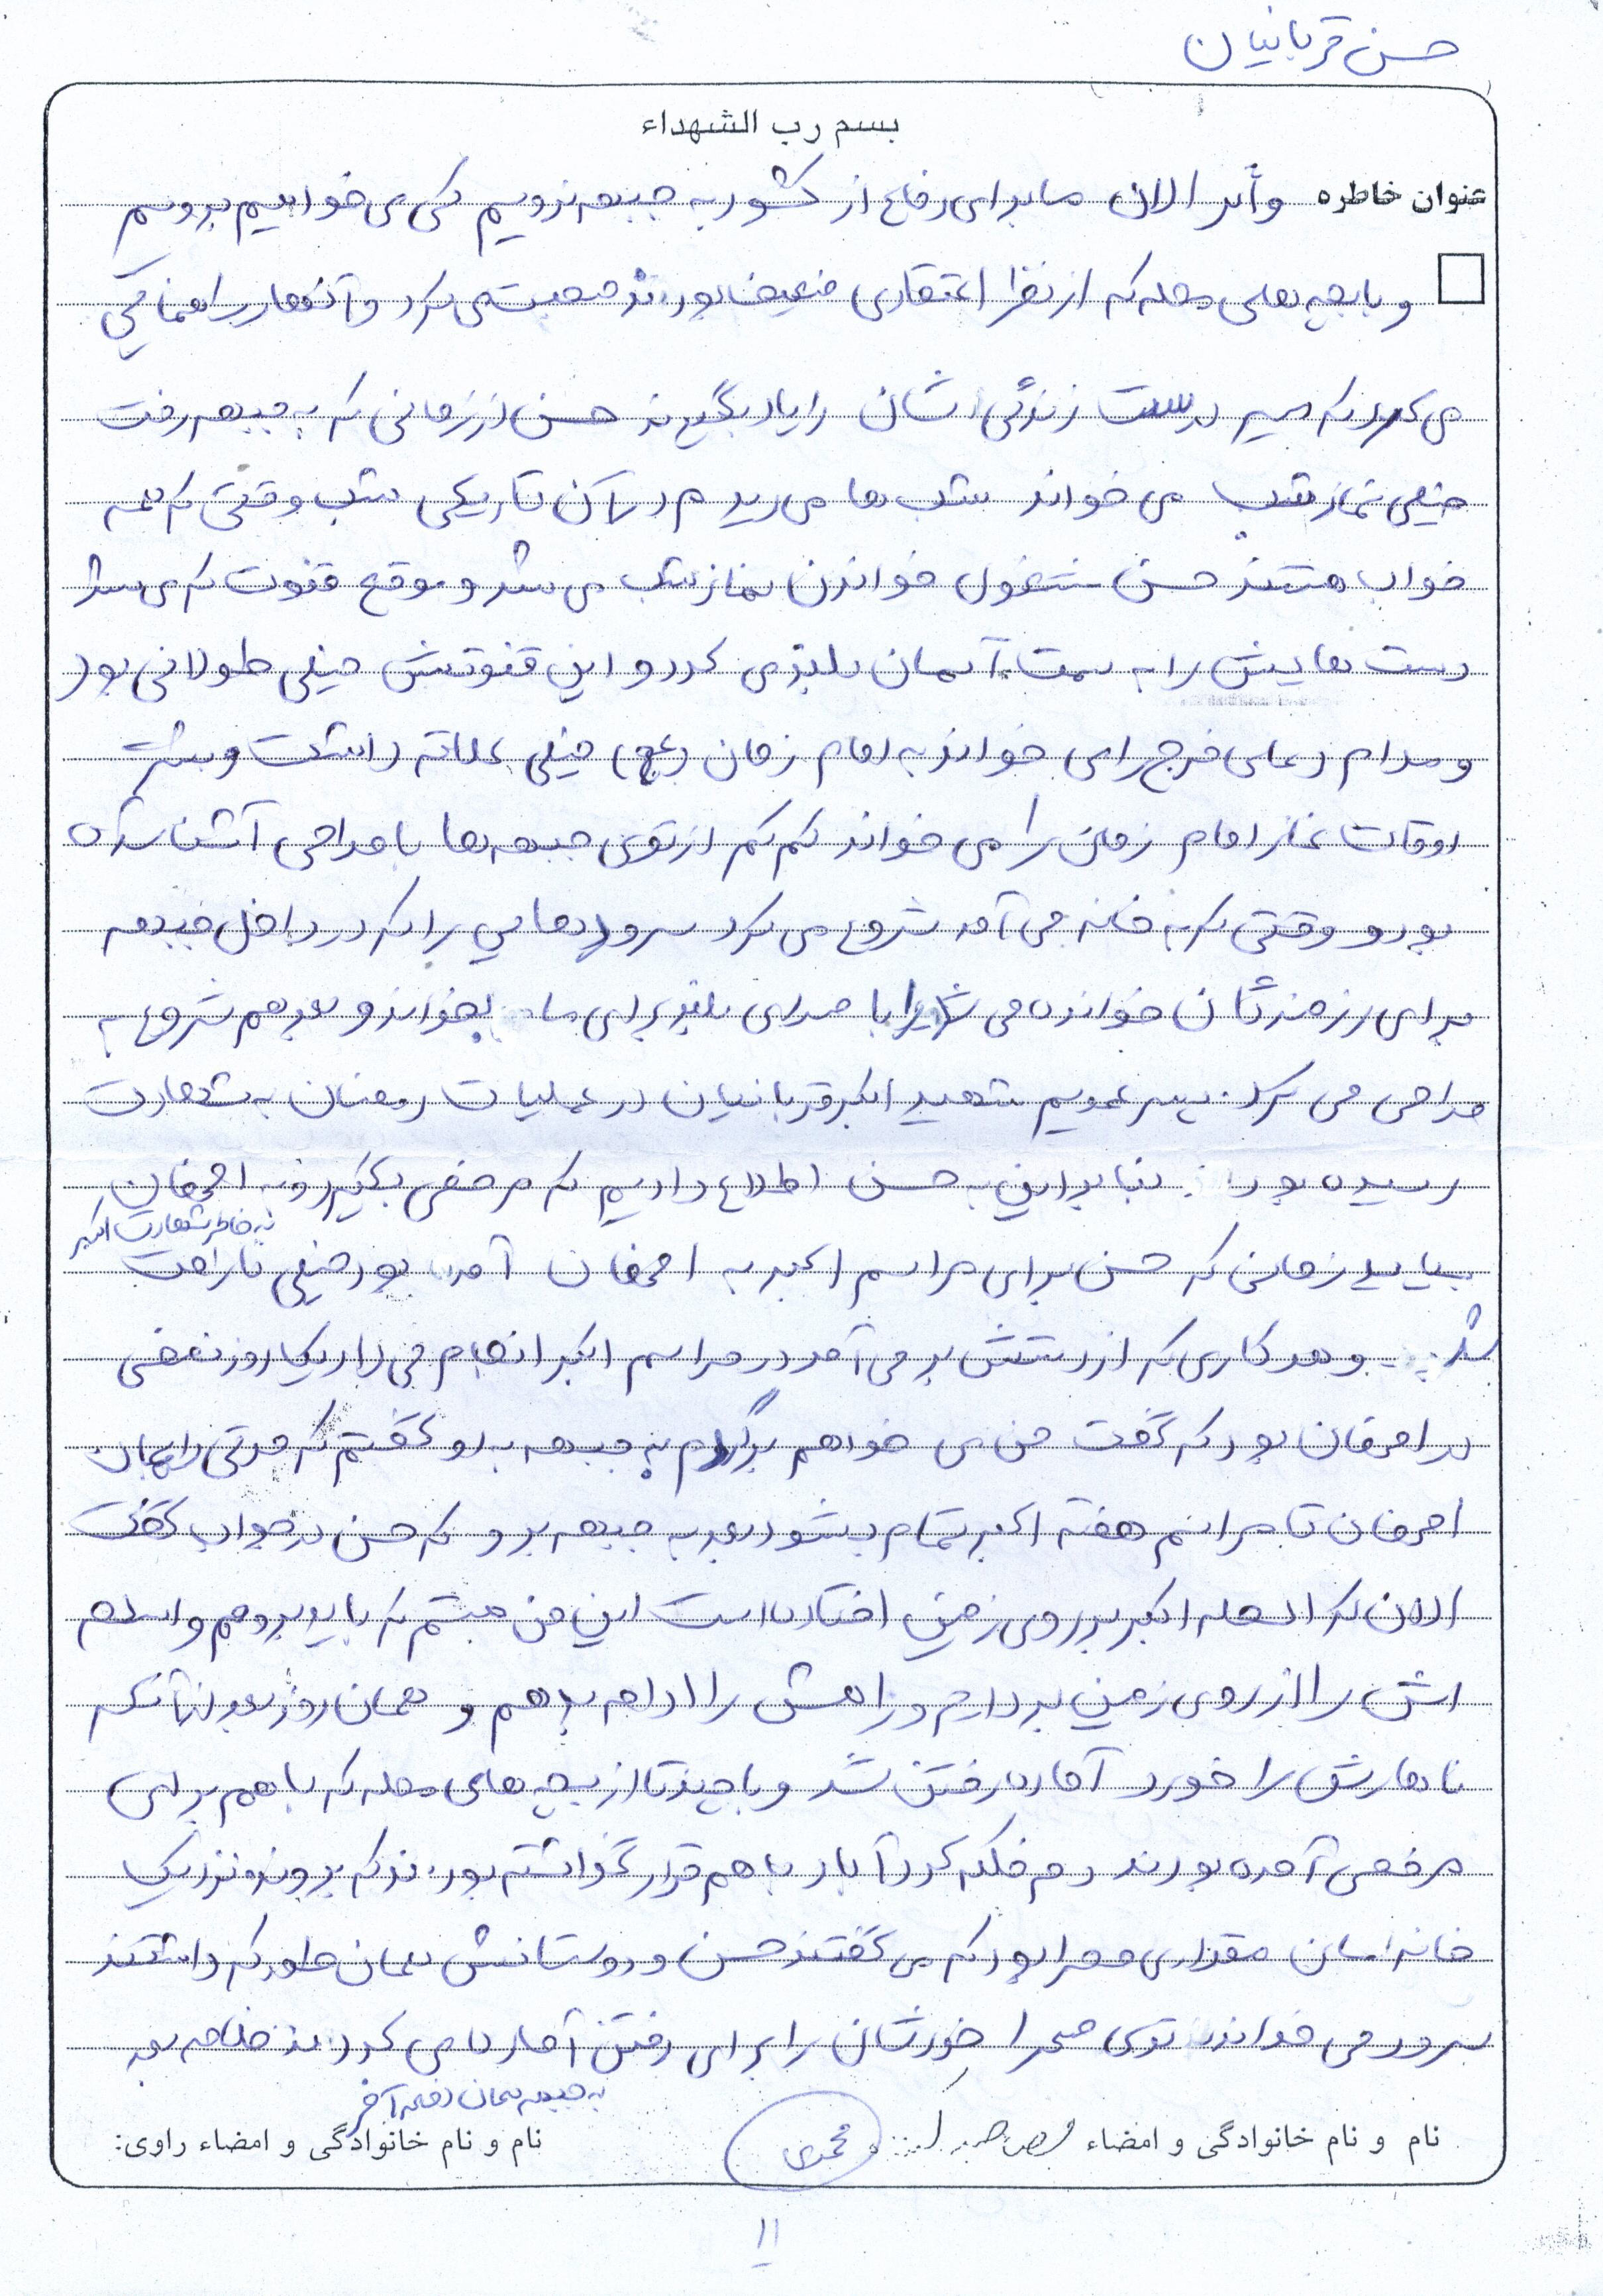 حسن قربانیان
بسم رب الشهداء
عنوان خاطره و اگر الان ما برای دفاع از کشور به جبهه نرویم کی می خواهیم برویم
و با بچه های محله که از نظر اعتقادی ضعیف بودند صحبت می کرد و آنها را راهنمایی
می کرد که مسیر درست زندگی اشان را یاد بگیرند حسن از زمانی که به جبهه رفت
خیلی نماز شب می خواند شب ها می دیدم در آن تاریکی شب وقتی که همه
خواب هستند حسن مشغول خواندن نماز شب می شد و موقع قنوت که می شد
دست هایش را به سمت آسمان بلند می کرد و این قنوتش خیلی طولانی بود
و مدام دعای فرج را می خواند به امام زمان (عج) خیلی علاقه داشت و بیشتر
اوقات نماز امام زمان را می خواند کم کم از توی جبهه ها با مداحی آشنا شده
بود و وقتی که به خانه می آمد شروع می کرد سرودهایی را که در داخل جبهه
برای رزمندگان خوانده می شد را با صدای بلند برای ما بخواند و بعد هم شروع به
مداحی می کرد. پسر عمویم شهید اکبر قربانیان در عملیات رمضان به شهادت
رسیده بود. بنابراین به حسن اطلاع دادیم که مرخصی بگیرد و به اصفهان
به خاطر شهادت اکبر
بیاید زمانی که حسن برای مراسم اکبر به اصفهان آمده بود خیلی ناراحت
شد و هر کاری که از دستش بر می آمد در مراسم اکبر انجام می داد یکی دو روز
در اصفهان بود که گفت من می خواهم برگردم به جبهه به او گفتم که مدتی را بمان
اصفهان تا مراسم هفته اکبر تمام بشود بعد به جبهه برو که حسن در جواب گفت
الان که اسلحه اکبر بر روی زمین افتاده است این من هستم که باید بروم و اسلحه
اش را از روی زمین بردارم و راهش را ادامه بدهم و همان روز بعد از آنکه
ناهارش را خورد آماده رفتن شد و با چند تا از بچه های محله که با هم برای
مرخصی آمده بودند دم فلکه کردآباد با هم قرار گذاشته بودند که بروند نزدیک
خانه امان مقداری صحرا بود که می گفتند حسن و دوستانش همان طور که داشتند
سرود می خواندند توی صحرا خودشان را برای رفتن آماده می کردند خلاصه به
به جبهه همان دفعه آخر
نام و نام خانوادگی و امضاء
محمدی
نام و نام خانوادگی و امضاء راوی:
۱۱